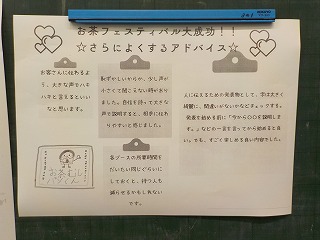 お茶フェスティバル大成功！！
☆さらによくするアドバイス☆
お客さんに伝わるよ
う、大きな声でハキ
ハキと言えるといい
なと思います。
恥ずかしいからか、少し声が
小さくて聞こえない時があり
ました。自信を持って大きな
声で説明すると、相手に伝わ
りやすいと感じました。
人に伝えるための発表物として、字は大きく
綺麗に、間違いがないかなどチェックする。
発表を始める前に「今から〇〇を説明しま
す。」などの一言を言ってから始めると良
い。でも、すごく楽しめる良い内容でした。
各ブースの所要時間を
だいたい同じぐらいに
しておくと、待つ人も
減らせるかもしれない
です。
お茶むし